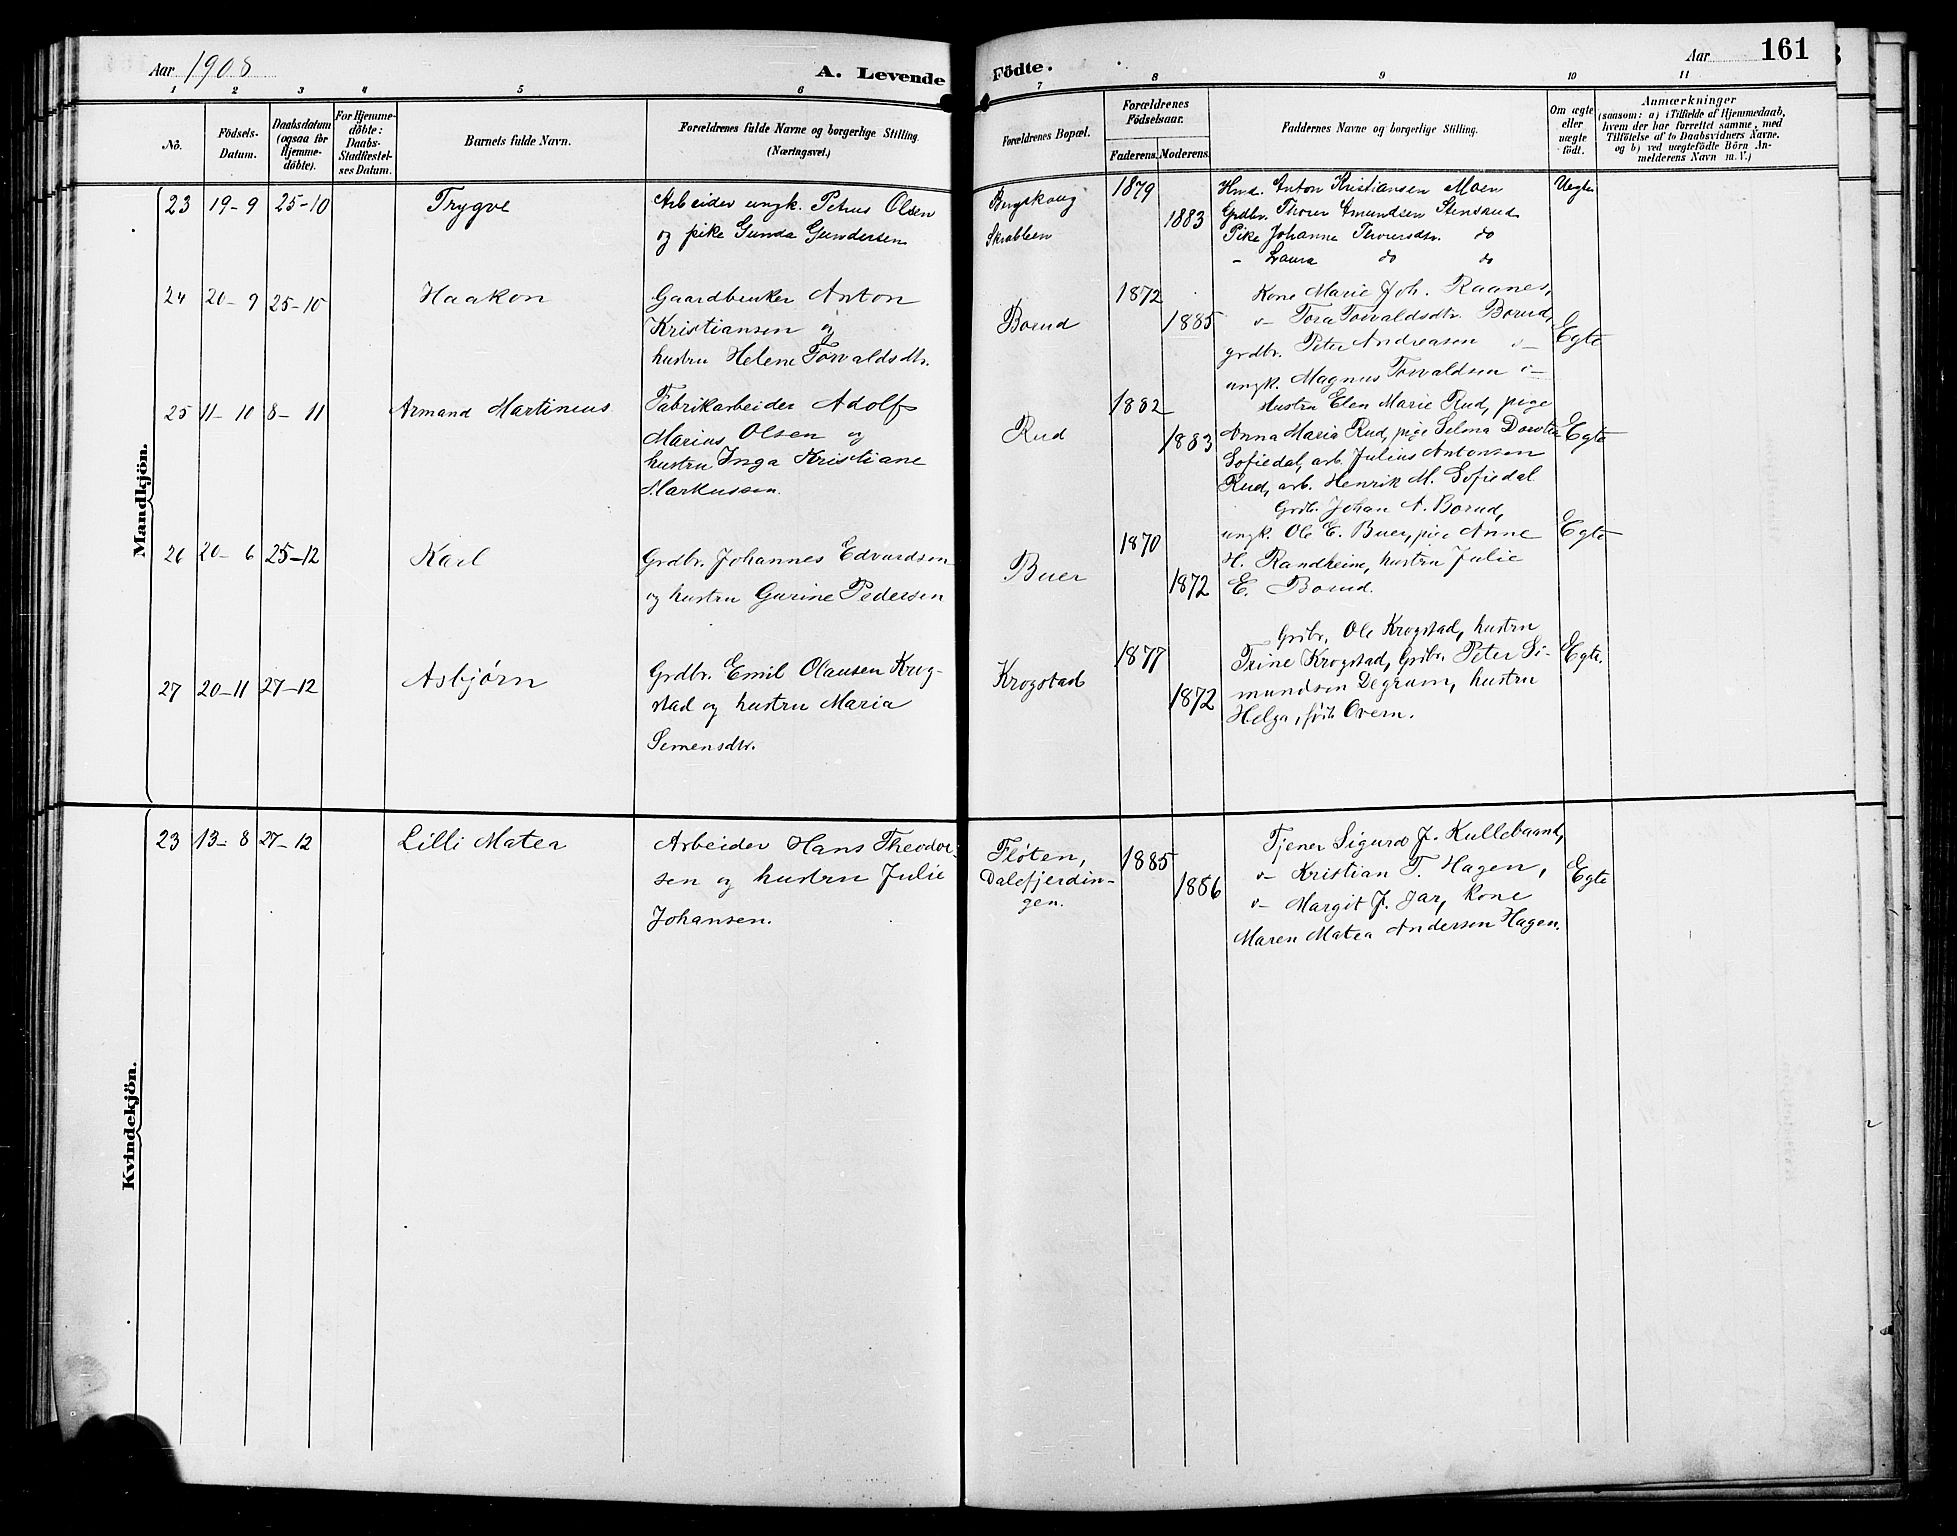 Aar 1908
A. Levende
Födte.
Aar
161
1 2 3 4 5 6 7 8 9 10 11
No.
Födsels-
Datum.
Daabsdatum
(ogsaa for
Hjemme-
döbte).
For Hjemme-
döbte:
Daabs-
Stadfæstel-
ses Datum.
Barnets fulde Navn.
Forældrenes fulde Navne og borgerlige Stilling.
(Næringsvei.)
Forældrenes Bopæl.
Forældrenes
Födselsaar.
Faderens.
Moderens.
Faddernes Navne og borgerlige Stilling.
Om ægte
eller
uægte
födt.
Anmærkninger
(saasom: a) i Tilfælde af Hjemmedaab,
hvem der har forrettet samme, med
Tilföielse af to Daabsvidners Navne.
og b) ved uægtefödte Börn An-
melderens Navn m. V.)
Mandkjön.
23 19-9 25-10 Trygve
Arbeider ungk. Petrus Olsen
og pike Gunda Gundersen
Bergskaug
Skrabben
1879
1883
Hmd. Anton Kristiansen Moen
Grdbr. Thorer Amundsen Stensrud
Pike Johanne Thorersdtr. do
- Laura do do
Uegte
24 20-9 25-10 Haakon
Gaardbruker Anton
Kristiansen og
hustru Helene Torvaldsdtr.
Borud
1872
1885
Kone Marie Joh. Raanes,
- Tora Torvaldsdtr. Borud,
grdbr. Peter Andreasen
ungk. Magnus Torvaldsen
Egte
25 11-10 8-11 Armand Martinius
Fabrikarbeider Adolf
Marius Olsen og
hustru Inga Kristiane
Markussen.
Rud
1882
1883
Hustru Elen Marie Rud, pige
Anna Maria Rud, pige Selma Dorthea
Sofiedal, arb. Julius Antonsen
Rud, arb. Henrik M. Sofiedal
Egte
26 20-6 25-12 Karl
Grdbr. Johannes Edvardsen
og hustru Gurine Pedersen
Buer
1870
1872
Grdbr. Johan A. Borud,
ungk. Ole E. Buer, pige Anne
H. Randheim, hustru Julie
E. Borud.
Egte
27 20-11 27-12 Asbjørn
Grdbr. Emil Olausen Krog-
stad og hustru Maria
Semensdtr.
Krogstad
1877
1872
Grdbr. Ole Krogstad, hustru
Trine Krogstad, Grdbr. Peter Si-
mundsen Degrum, hustru
Helga, født Overn.
Egte.
Kvindekjön.
23 13-8 27-12 Lilli Matea
Arbeider Hans Theodor-
sen og hustru Julie
Johansen.
Fløten,
Dalefjerdin-
gen.
1885
1886
Tjener Sigurd J. Kullebaand,
- Kristian T. Hagen,
- Margit J. Jar, kone
Maren Matea Andersen Hagen.
Egte